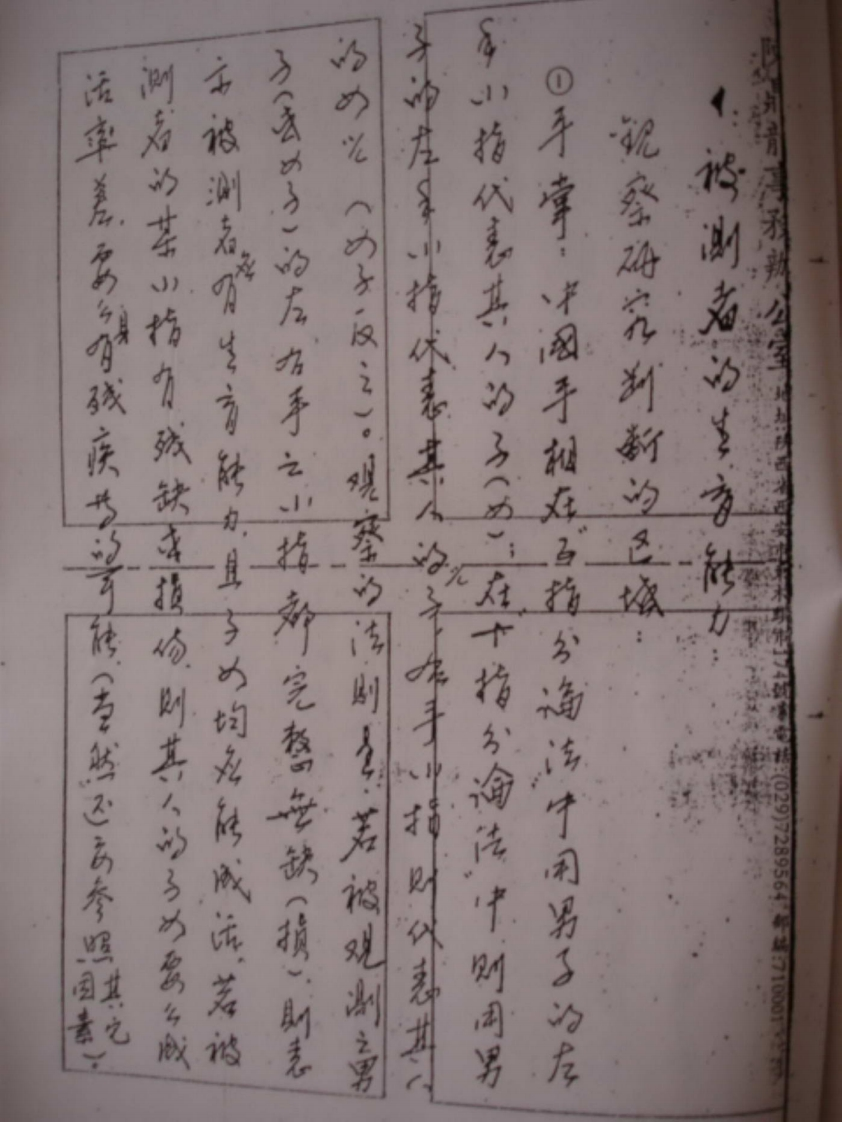 青事務辦公室 地址陕西省西安市 174號 電話:(029)7289564 郵編:710001
1.被测者的生育能力:
观察研究判断的区域:
①手掌:中國手相在“五指分論法”中用男子的左
手小指代表其人的子(女);在“十指分論法”中则用男
子的左手小指代表其人的儿子,右手小指则代表其人
的女儿(女子反之)。观察的法则是:若被观测之男
子(或女子)的左右手之小指都完整無缺(損),则表
示被测者应有生育能力,且子女均应能成活,若被
测者的某小指有残缺或損伤,则其人的子女要么成
活率差,要么身有残疾等的可能(当然还要参照其它因素)。